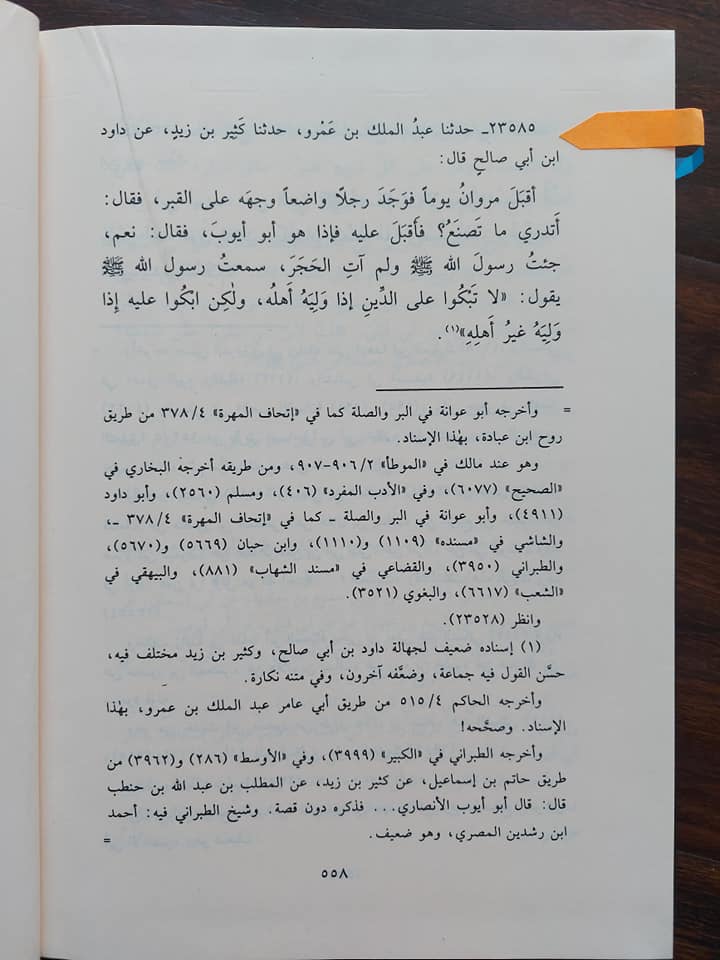 ٢٣٥٨٥ـ حدثنا عبدُ الملك بن عَمْرو، حدثنا كَثِير بن زيدٍ، عن داود
ابن أبي صالحٍ قال:
أقبَلَ مروانُ يوماً فوَجَدَ رجلًا واضعاً وجهَه على القبر، فقال:
أَتدري ما تَصنَعُ؟ فأَقبَلَ عليه فإذا هو أبو أيوبَ، فقال: نعم،
جئتُ رسولَ الله ﷺ ولم آتِ الحَجَرَ، سمعتُ رسول الله ﷺ
يقول: «لا تَبْكُوا على الدِّينِ إذا وَلِيَهُ أهلُه، ولٰكِن ابْكُوا عليه إذا
وَلِيَهُ غيرُ أَهلِهِ»(١).
= وأخرجه أبو عوانة في البر والصلة كما في «إتحاف المهرة» ٣٧٨/٤ من طريق
روح ابن عبادة، بهٰذا الإسناد.
وهو عند مالك في «الموطأ» ٩٠٦/٢-٩٠٧، ومن طريقه أخرجه البخاري في
«الصحيح» (٦٠٧٧)، وفي «الأدب المفرد» (٤٠٦)، ومسلم (٢٥٦٠)، وأبو داود
(٤٩١١)، وأبو عوانة في البر والصلة ـ كما في «إتحاف المهرة» ٣٧٨/٤ ـ،
والشاشي في «مسنده» (١١٠٩) و(١١١٠)، وابن حبان (٥٦٦٩) و(٥٦٧٠)،
والطبراني (٣٩٥٠)، والقضاعي في «مسند الشهاب» (٨٨١)، والبيهقي في
«الشعب» (٦٦١٧)، والبغوي (٣٥٢١).
وانظر (٢٣٥٢٨).
(١) إسناده ضعيف لجهالة داود بن أبي صالح، وكثير بن زيد مختلف فيه،
حسَّن القول فيه جماعة، وضعَّفه آخرون، وفي متنه نكارة.
وأخرجه الحاكم ٥١٥/٤ من طريق أبي عامر عبد الملك بن عمرو، بهٰذا
الإسناد. وصحَّحه!
وأخرجه الطبراني في «الكبير» (٣٩٩٩)، وفي «الأوسط» (٢٨٦) و(٣٩٦٢) من
طريق حاتم بن إسماعيل، عن كثير بن زيد، عن المطلب بن عبد الله بن حنطب
قال: قال أبو أيوب الأنصاري... فذكره دون قصة. وشيخ الطبراني فيه: أحمد
ابن رشدين المصري، وهو ضعيف. =
٥٥٨